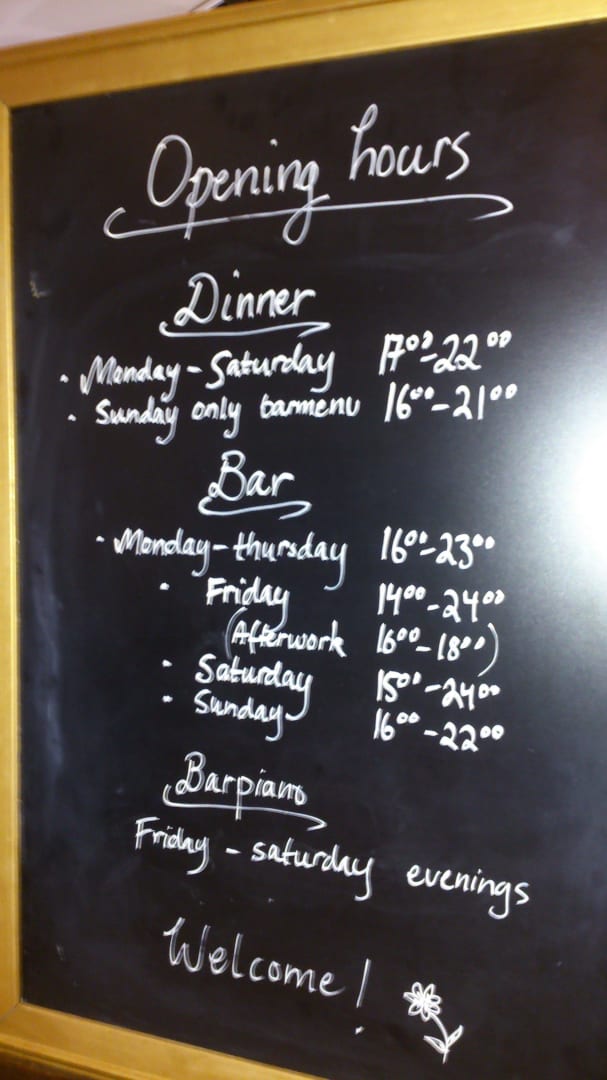 Opening hours
Dinner
• Monday - Saturday 17⁰⁰-22⁰⁰
• Sunday only barmenu 16⁰⁰-21⁰⁰
Bar
• Monday - thursday 16⁰⁰-23⁰⁰
• Friday 14⁰⁰-24⁰⁰
(Afterwork 16⁰⁰-18⁰⁰)
• Saturday 15⁰⁰-24⁰⁰
• Sunday 16⁰⁰-22⁰⁰
Barpiano
Friday - saturday evenings
Welcome!